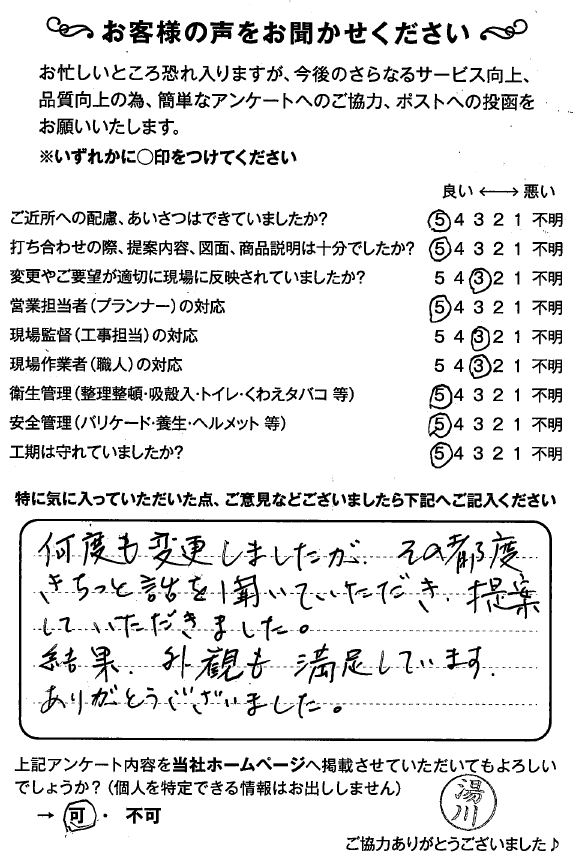 お客様の声をお聞かせください
お忙しいところ恐れ入りますが、今後のさらなるサービス向上、
品質向上の為、簡単なアンケートへのご協力、ポストへの投函を
お願いいたします。
※いずれかに〇印をつけてください
良い ⟷ 悪い
ご近所への配慮、あいさつはできていましたか? 5 4 3 2 1 不明
打ち合わせの際、提案内容、図面、商品説明は十分でしたか? 5 4 3 2 1 不明
変更やご要望が適切に現場に反映されていましたか? 5 4 3 2 1 不明
営業担当者(プランナー)の対応 5 4 3 2 1 不明
現場監督(工事担当)の対応 5 4 3 2 1 不明
現場作業者(職人)の対応 5 4 3 2 1 不明
衛生管理(整理整頓・吸殻入・トイレ・くわえタバコ 等) 5 4 3 2 1 不明
安全管理(バリケード・養生・ヘルメット 等) 5 4 3 2 1 不明
工期は守れていましたか? 5 4 3 2 1 不明
特に気に入っていただいた点、ご意見などございましたら下記へご記入ください
何度も変更しましたが、その都度
きちっと話を聞いていただき、提案
していただきました。
結果、外観も満足しています。
ありがとうございました。
上記アンケート内容を当社ホームページへ掲載させていただいてもよろしい
でしょうか?(個人を特定できる情報はお出ししません)
→ 可 ・ 不可
湯川
ご協力ありがとうございました♪